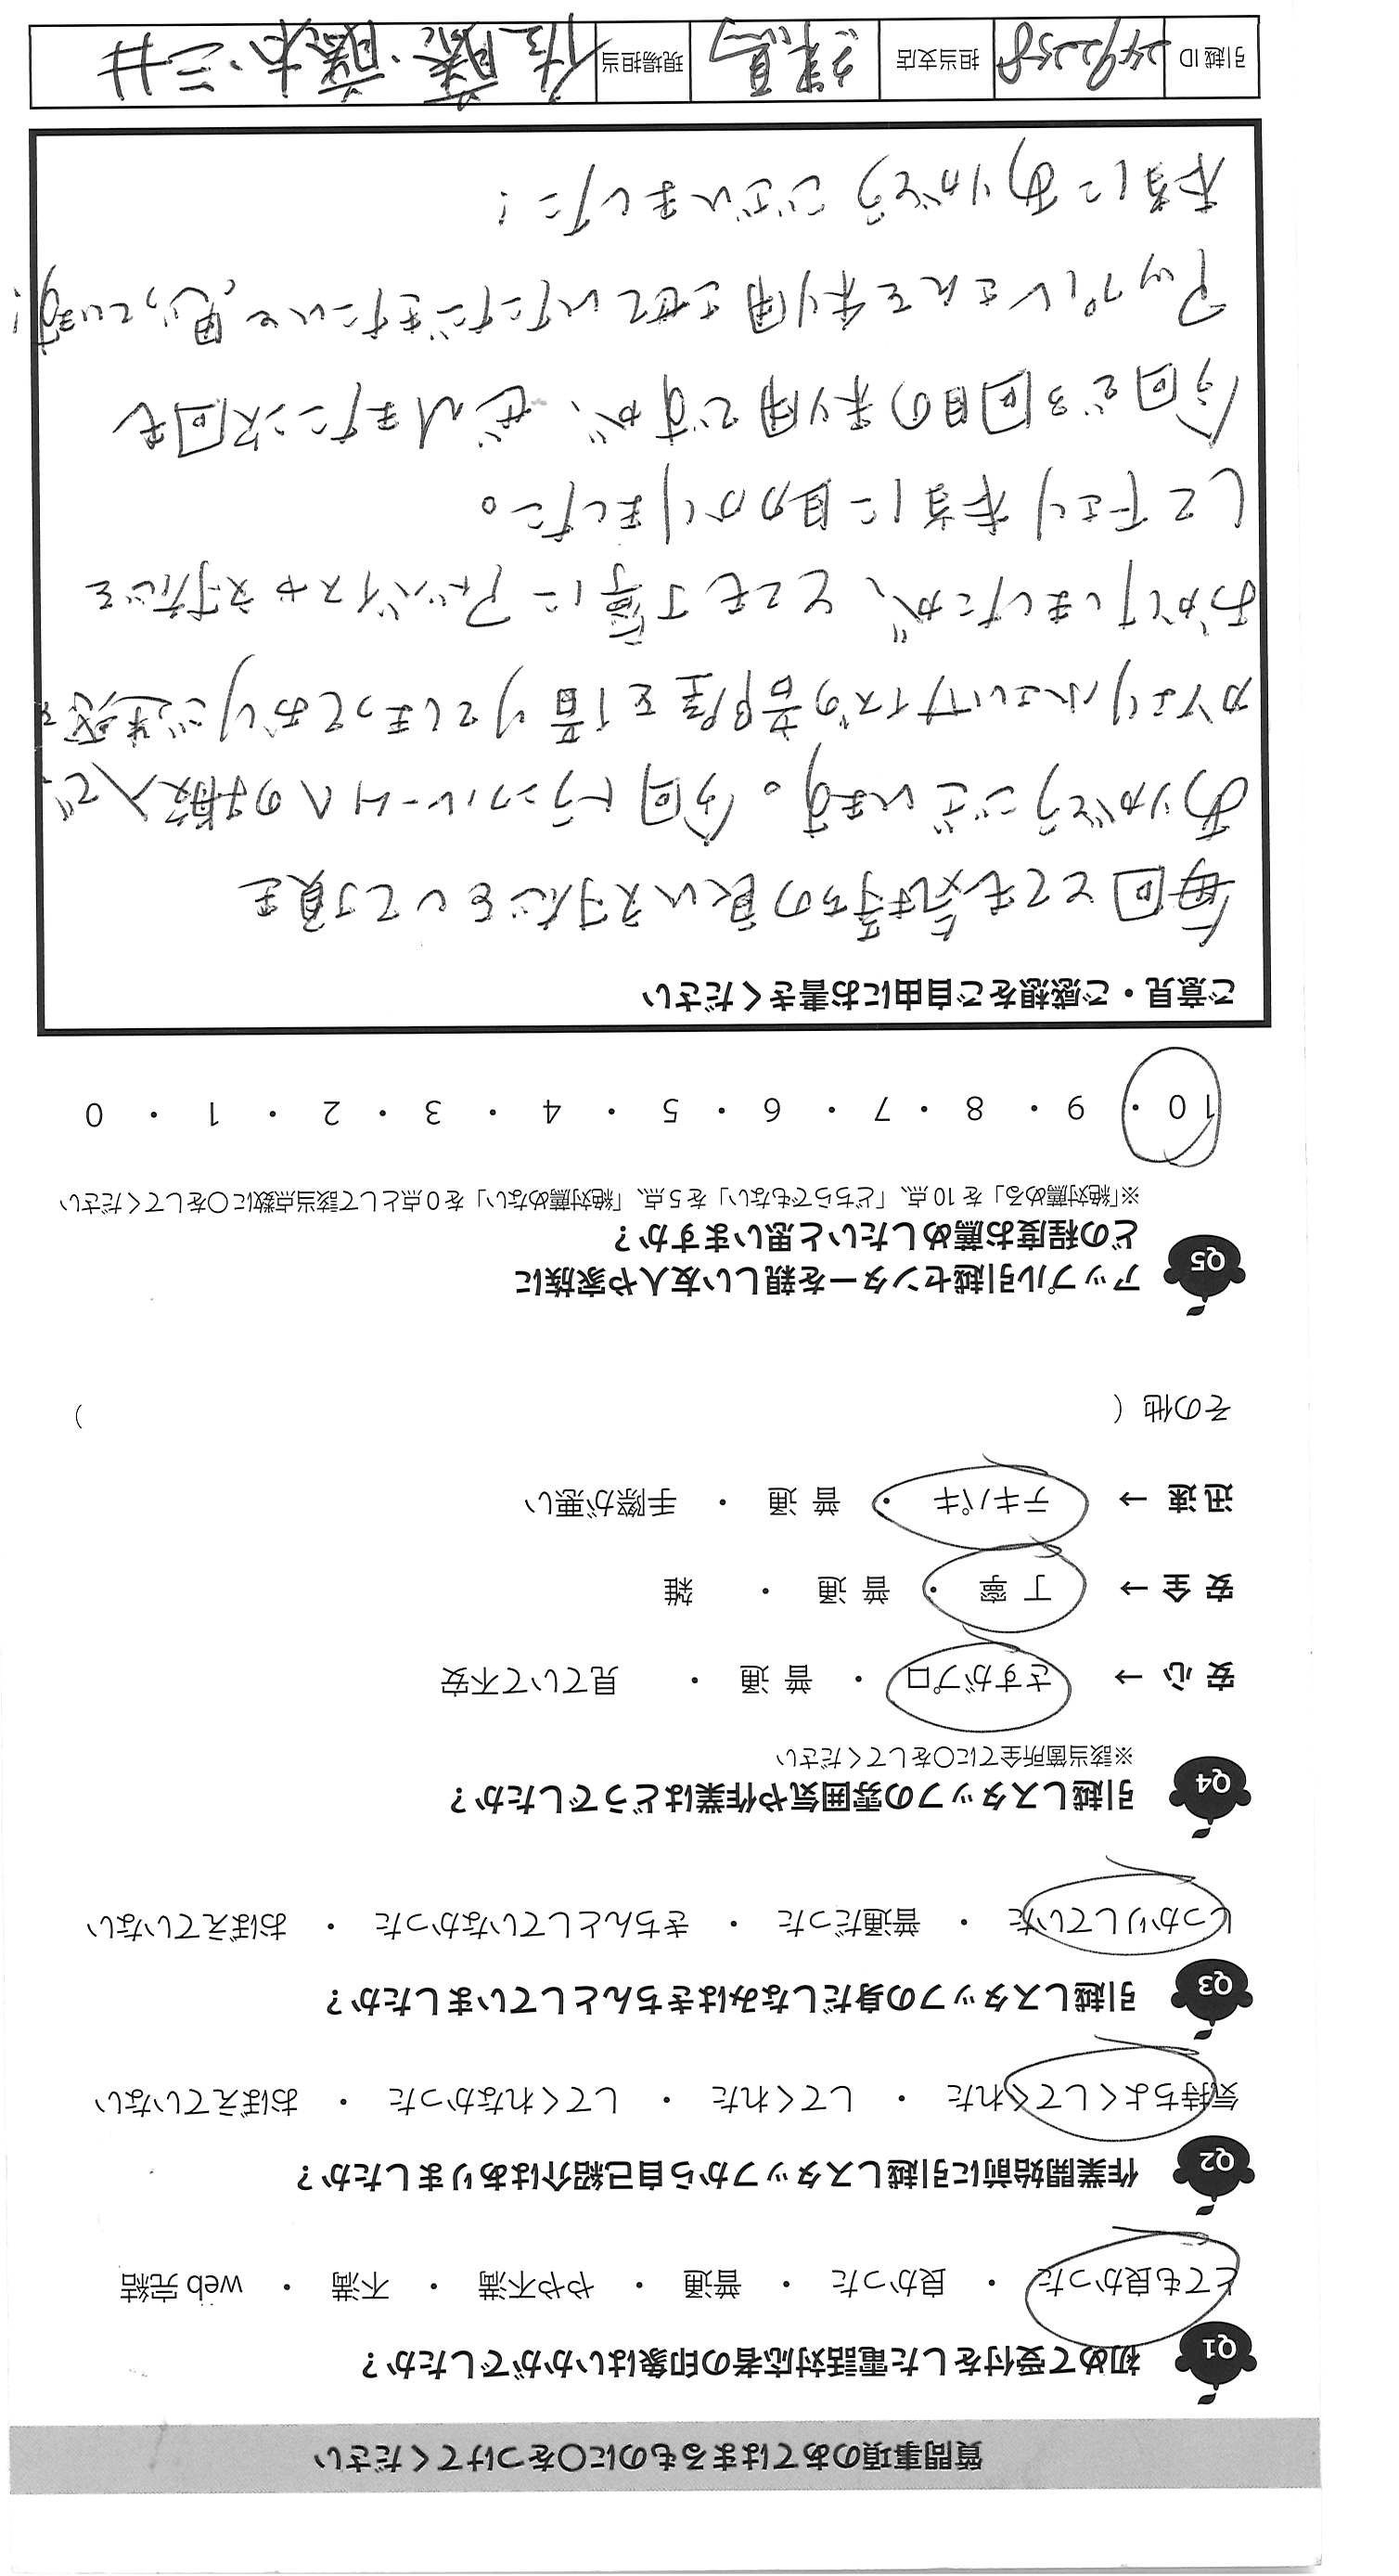 質問事項のあてはまるものに○をつけてください
Q1 初めて受付をした電話対応者の印象はいかがでしたか？
とても良かった ・ 良かった ・ 普通 ・ やや不満 ・ 不満 ・ web完結
Q2 作業開始前に引越しスタッフから自己紹介はありましたか？
気持ちよくしてくれた ・ してくれた ・ してくれなかった ・ おぼえていない
Q3 引越しスタッフの身だしなみはきちんとしていましたか？
しっかりしていた ・ 普通だった ・ きちんとしていなかった ・ おぼえていない
Q4 引越しスタッフの雰囲気や作業はどうでしたか？
※該当箇所全てに○をしてください
安心 → さすがプロ ・ 普通 ・ 見ていて不安
安全 → 丁寧 ・ 普通 ・ 雑
迅速 → テキパキ ・ 普通 ・ 手際が悪い
その他 （ ）
Q5 アップル引越センターを親しい友人や家族に
どの程度お薦めしたいと思いますか？
※「絶対薦める」を10点、「どちらでもない」を5点、「絶対薦めない」を0点として該当点数に○をしてください
10 ・ 9 ・ 8 ・ 7 ・ 6 ・ 5 ・ 4 ・ 3 ・ 2 ・ 1 ・ 0
ご意見・ご感想をご自由にお書きください
毎回とても気持ちの良い対応をして頂き
ありがとうございます。今回トランクルームへの搬入で
かなり小さいサイズの部屋を借りてしまっておりご迷惑を
おかけしましたが、とても丁寧にアドバイスや対応を
して下さり本当に助かりました。
今回で3回目の利用ですが、ぜひまた次回も
アップルさんを利用させていただきたいと思っています！
本当にありがとうございました！
引越ID 2492258 担当支店 練馬 現場担当 佐藤・藤木・三井